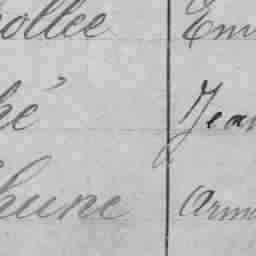 ollée Em
hé Jean
hune Arm